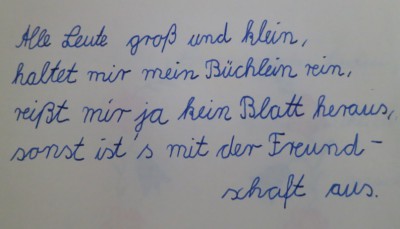 Alle Leute groß und klein,
haltet mir mein Büchlein rein,
reißt mir ja kein Blatt heraus,
sonst ist's mit der Freund-
schaft aus.